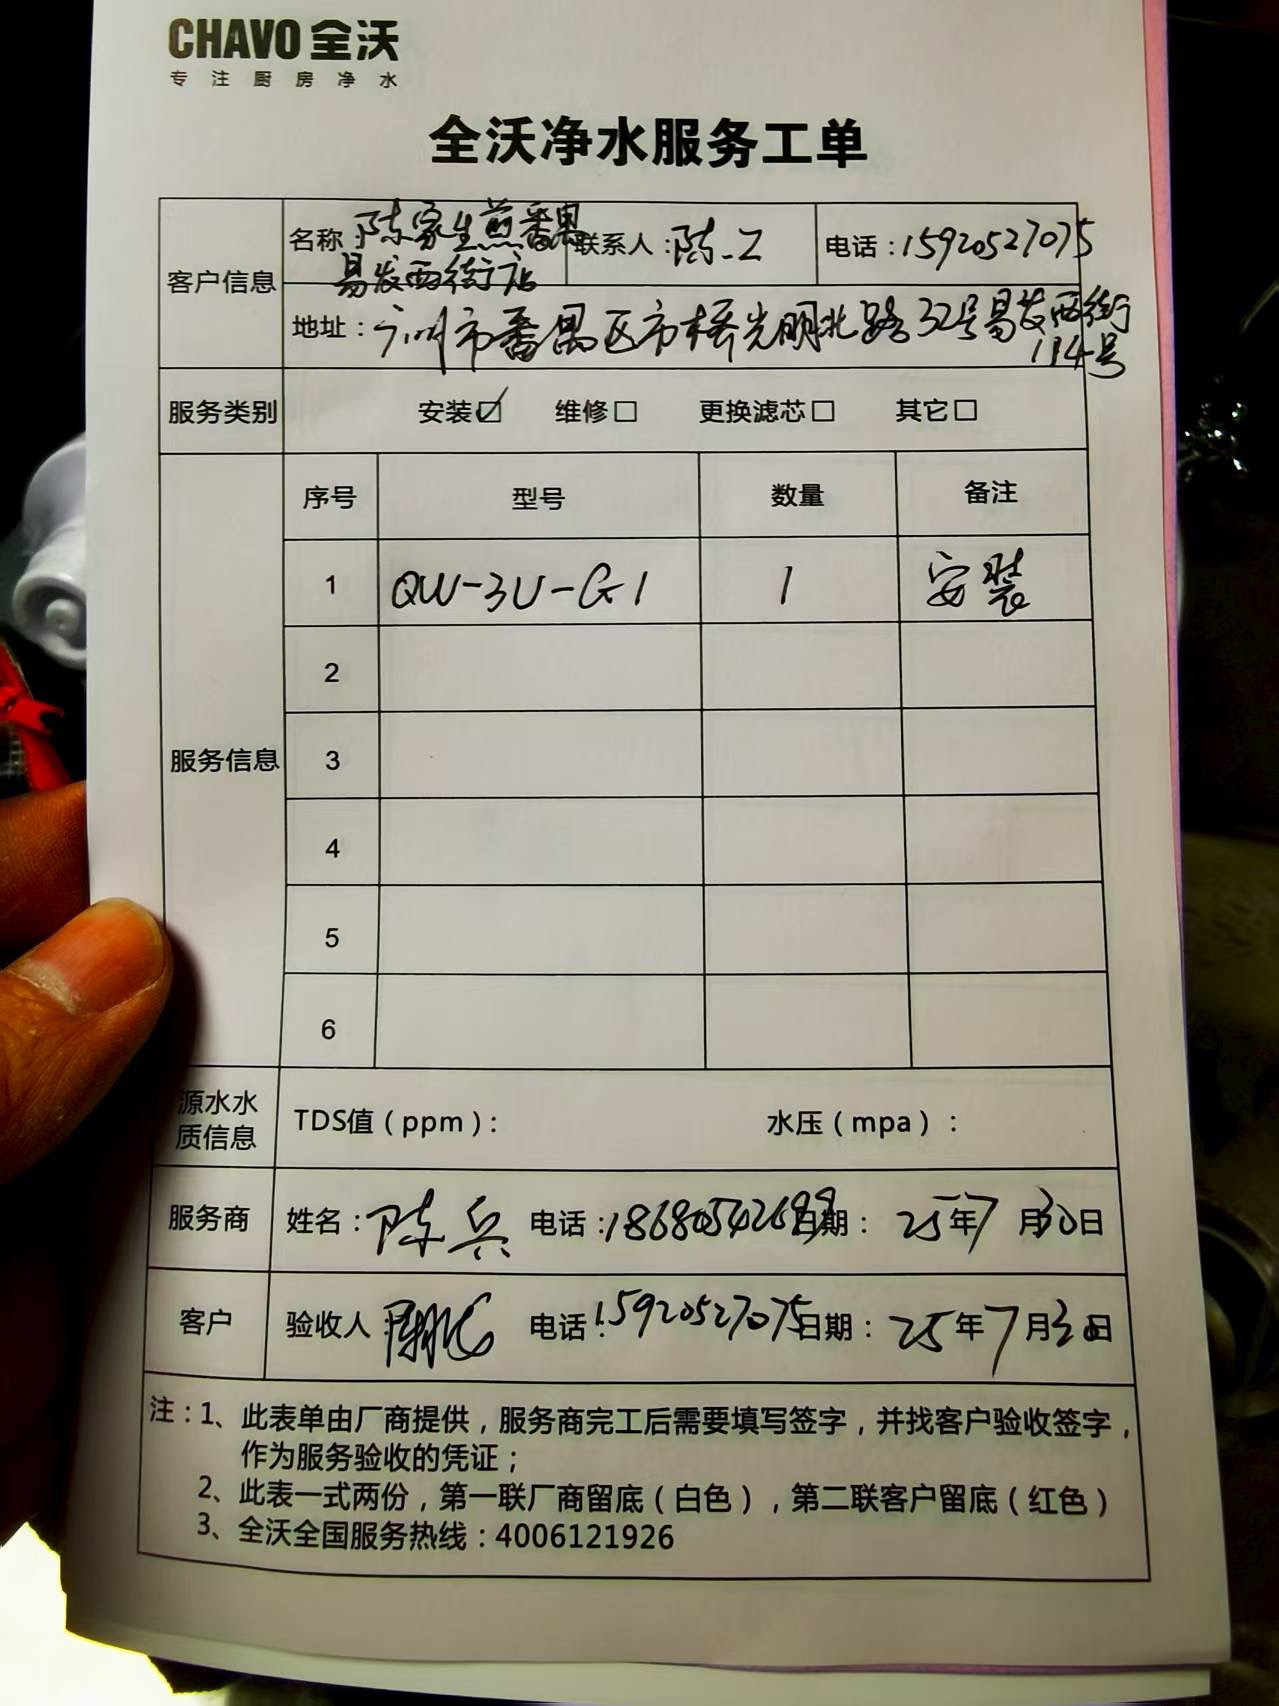 CHAVO 全沃
专注厨房净水
全沃净水服务工单
客户信息
名称：陈家生煎番禺
易发西街店
联系人：陈工
电话：15920527075
地址：广州市番禺区市桥光明北路32号易发西街
114号
服务类别 安装☑ 维修□ 更换滤芯□ 其它□
服务信息
序号 型号 数量 备注
1 QW-3U-G1 1 安装
2
3
4
5
6
源水水
质信息
TDS值（ppm）： 水压（mpa）：
服务商 姓名：陈兵 电话：186805426 日期： 25年7月30日
客户 验收人 电话：15920527075 日期： 25年7月30日
注：1、此表单由厂商提供，服务商完工后需要填写签字，并找客户验收签字，
作为服务验收的凭证；
2、此表一式两份，第一联厂商留底（白色），第二联客户留底（红色）
3、全沃全国服务热线：4006121926